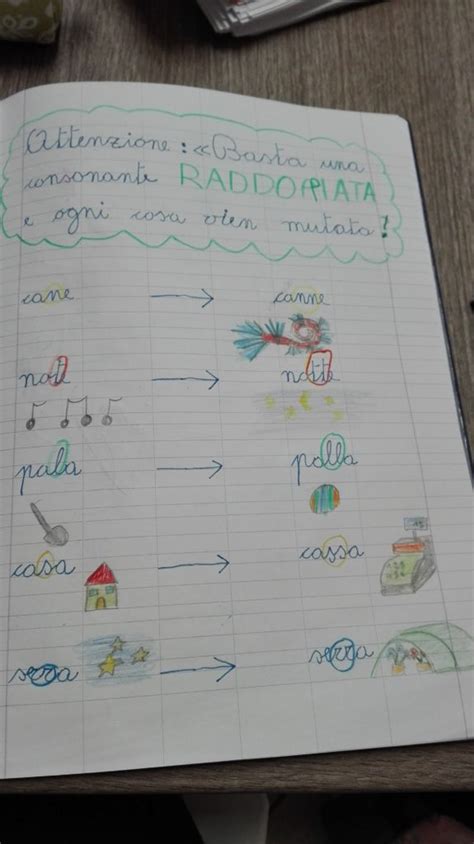 Attenzione: «Basta una
consonante RADDOPPIATA
e ogni cosa vien mutata!
cane → canne
note → notte
pala → palla
casa → cassa
sera → serra